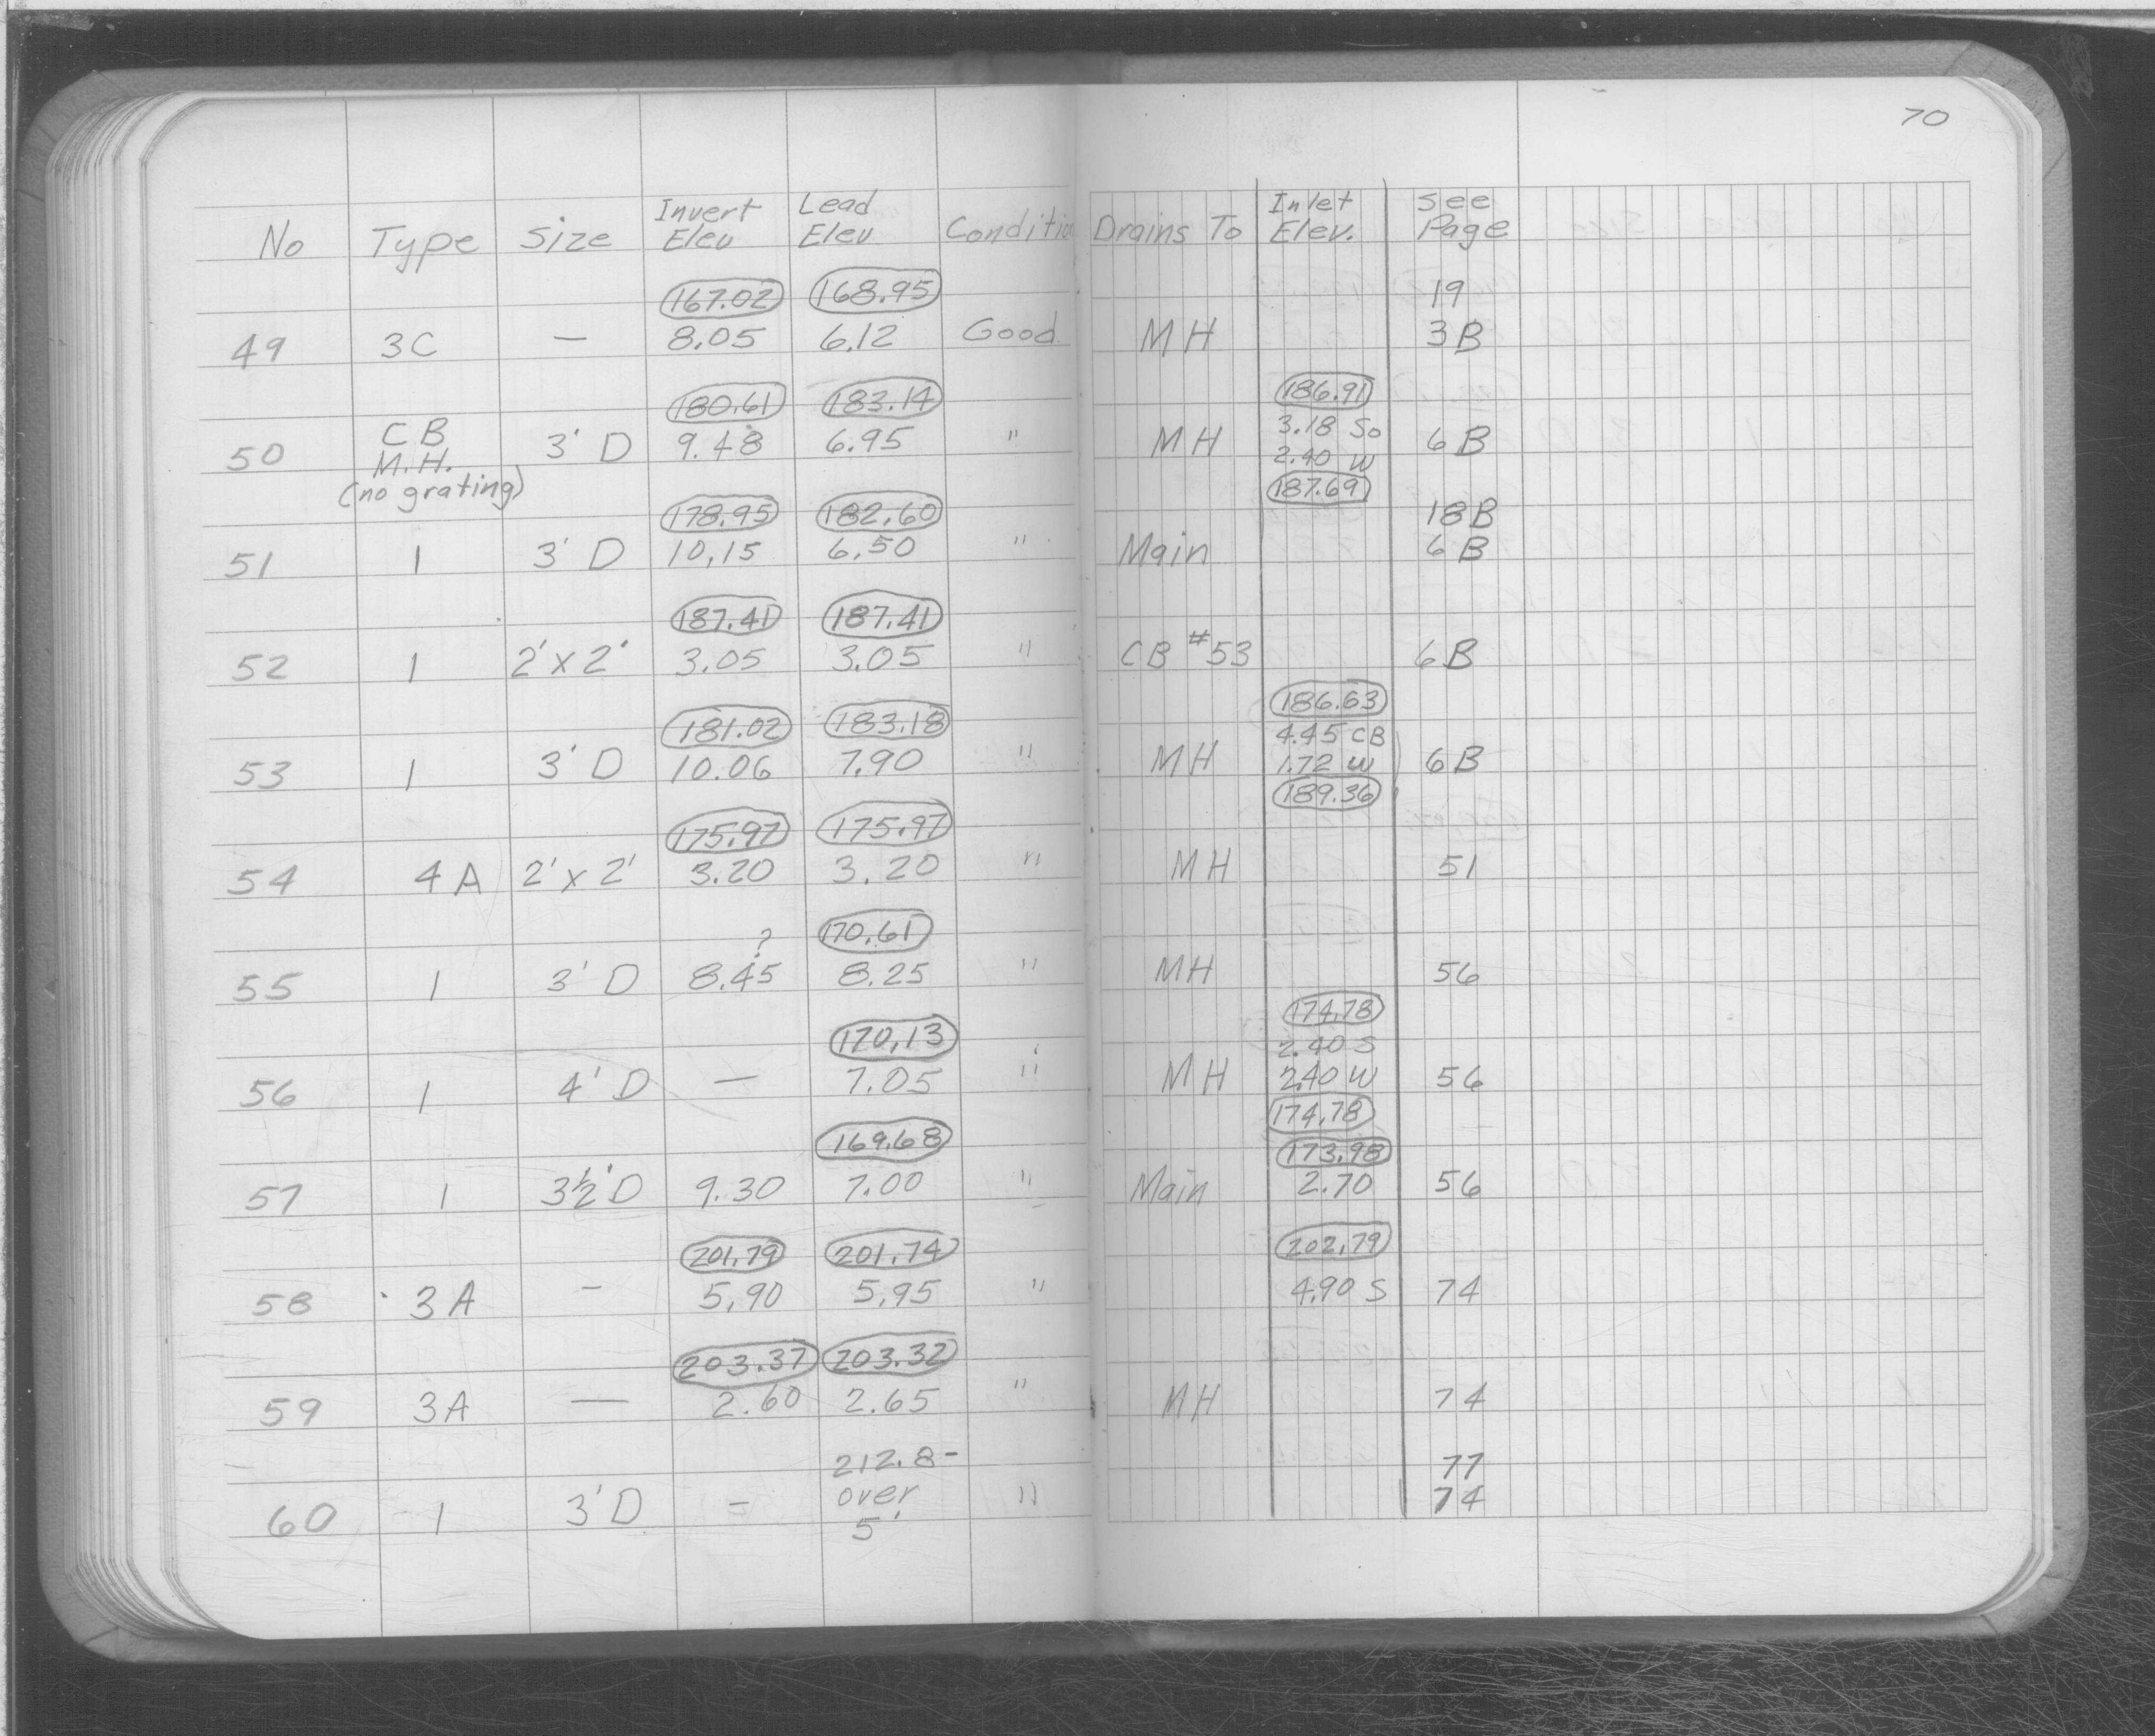 70
No Type Size Invert Elev Lead Elev Conditio Drains To Inlet Elev. See Page
167.02 168.95 19
49 3C — 8.05 6.12 Good MH 3B
180.61 183.14 186.91
50 CB 3' D 9.48 6.95 " MH 3.18 So 6B
M.H. 2.40 W
(no grating) 187.69
178.95 182.60 18B
51 1 3' D 10.15 6.50 " Main 6B
187.41 187.41
52 1 2' x 2' 3.05 3.05 " CB #53 6B
181.02 183.18 186.63
4.45 CB
53 1 3' D 10.06 7.90 " MH 1.72 W 6B
189.36
175.97 175.97
54 4A 2' x 2' 3.20 3.20 " MH 51
? 170.61
55 1 3' D 8.45 8.25 " MH 56
170.13 174.78
2.40 S
56 1 4' D — 7.05 " MH 2.40 W 56
174.78
169.68 173.98
57 1 3½' D 9.30 7.00 " Main 2.70 56
201.79 201.74 202.79
58 3A — 5.90 5.95 " 4.90 S 74
203.37 203.32
59 3A — 2.60 2.65 " MH 74
212.8- 77
60 1 3' D — over " 74
5'